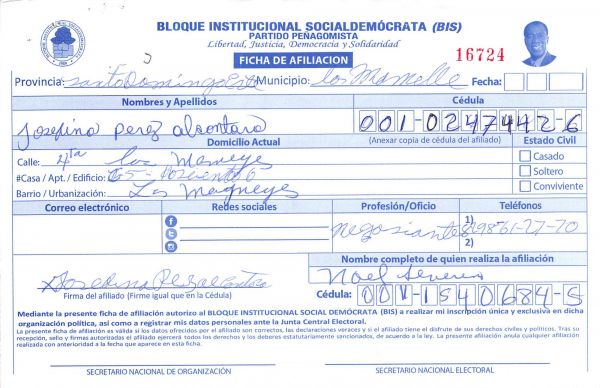 BLOQUE INSTITUCIONAL SOCIALDEMÓCRATA (BIS)
PARTIDO PEÑAGOMISTA
Libertad, Justicia, Democracia y Solidaridad
FICHA DE AFILIACION
16724
Provincia: Santo Domingo Este Municipio: Los Fecha:
Nombres y Apellidos Cédula
Josefina perez alcontara 001-02474426
Domicilio Actual (Anexar copia de cédula del afiliado) Estado Civil
Calle: 4ta Los
Casado
#Casa / Apt. / Edificio: 65
Soltero
Barrio / Urbanización: Los
Conviviente
Correo electrónico Redes sociales Profesión/Oficio Teléfonos
negosiante 1)
2)
Nombre completo de quien realiza la afiliación
Noel
Firma del afiliado (Firme igual que en la Cédula) Cédula: 001-1540684-5
Mediante la presente ficha de afiliación autorizo al BLOQUE INSTITUCIONAL SOCIAL DEMÓCRATA (BIS) a realizar mi inscripción única y exclusiva en dicha
organización política, así como a registrar mis datos personales ante la Junta Central Electoral.
La presente ficha de afiliación es válida si los datos ofrecidos por el afiliado son correctos, las declaraciones veraces y si el afiliado tiene el disfrute de sus derechos civiles y políticos. Tras su
recepción, sello y firmas autorizadas el afiliado ejercerá todos los derechos y los deberes estatutariamente sancionados, de acuerdo a la ley. La presente afiliación anula cualquier afiliación
realizada con anterioridad a la fecha que aparece en esta ficha.
SECRETARIO NACIONAL DE ORGANIZACIÓN SECRETARIO NACIONAL ELECTORAL